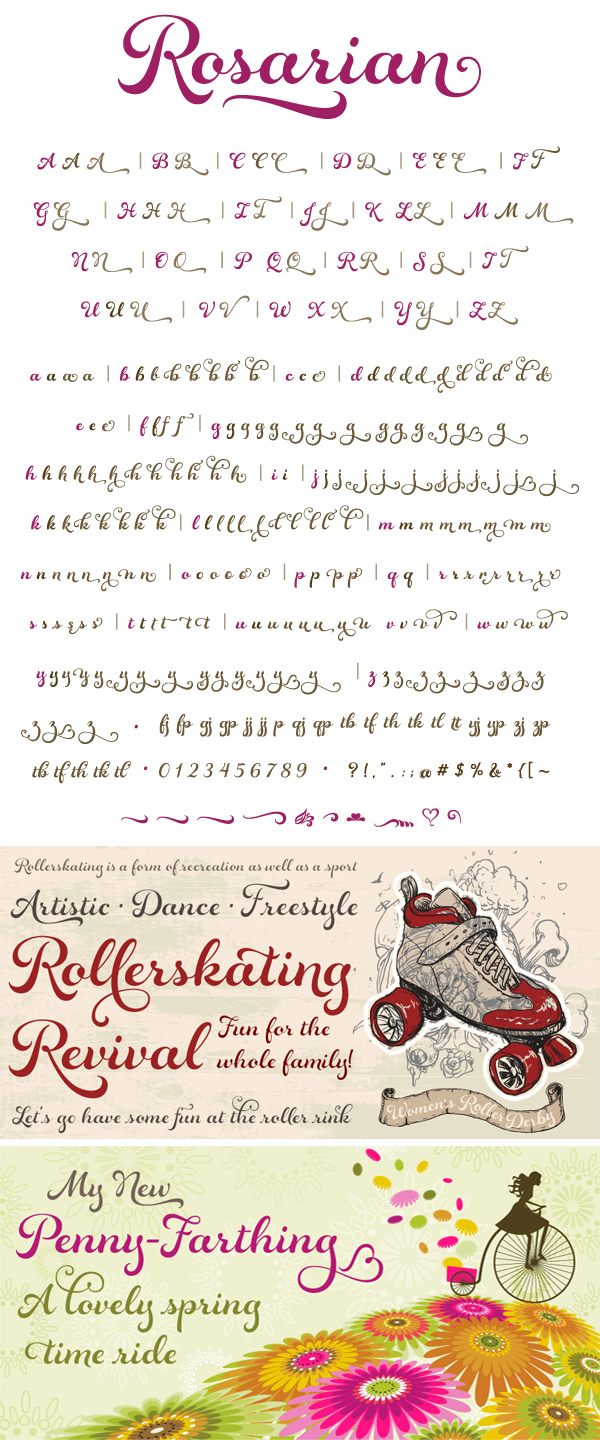 Rosarian
A A A | B B | C C C | D D | E E E | F F
G G | H H H | I I | J J | K L L | M M M
N N | O O | P Q Q | R R | S S | T T
U U U | V V | W X X | Y Y | Z Z
a a a a | b b b b b b b b | c c c | d d d d d d d d d d d
e e e | f f f f | g g g g g g g g g g g g g g g
h h h h h h h h h h h h | i i | j j j j j j j j j j j j j
k k k k k k k k | l l l l l l l l l l l | m m m m m m m m
n n n n n n n n n | o o o o o o o | p p p p | q q | r r r r r r r r
s s s s s s | t t t t t t t | u u u u u u u u v v v v | w w w w
y y y y y y y y y y y y y y y | z z z z z z z z z z
z z z z • fj fp gj gp jj jj p qj qp tb tf th tk tl tt yj yp zj zp
tb tf th tk tl • 0 1 2 3 4 5 6 7 8 9 • ? ! , " . : ; @ # $ % & * { [ ~
Rollerskating is a form of recreation as well as a sport
Artistic · Dance · Freestyle
Rollerskating
Revival
Fun for the
whole family!
Let's go have some fun at the roller rink
Women's Roller Derby
My New
Penny-Farthing
A lovely spring
time ride